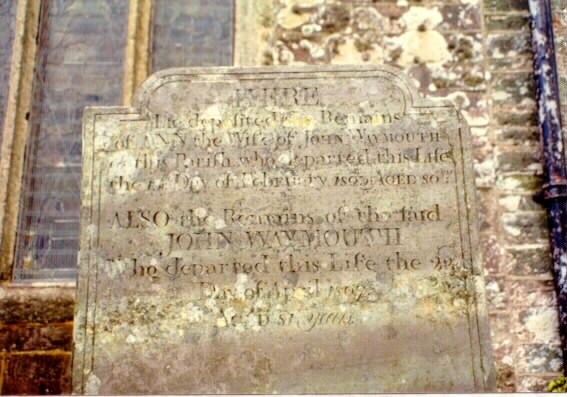 HERE
Lie deposited the Remains
of ANN the Wife of JOHN WAYMOUTH
of this Parish who departed this Life
the Day of February AGED 80
ALSO the Remains of the said
JOHN WAYMOUTH
Who departed this Life the
Day of April
AGED 81 years